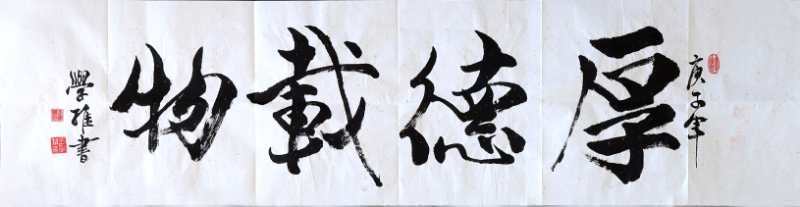 庚子年
厚德載物
學雄書